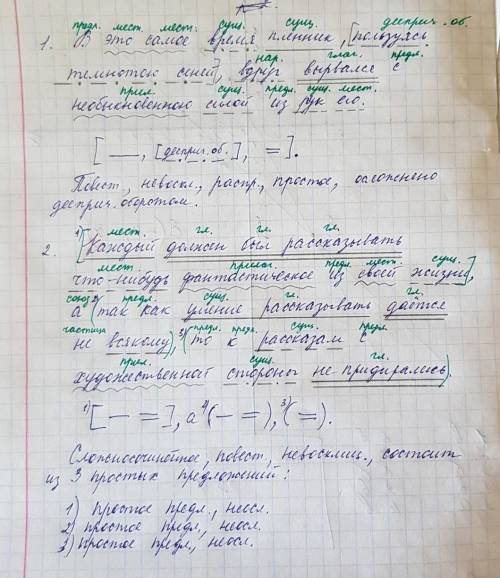 предл. мест. мест. сущ. сущ. дееприч. об.
1. В это самое время пленник, [пользуясь
нар. глаг. предл.
темнотою сеней], вдруг вырвался с
прил. сущ. предл. сущ. мест.
необыкновенною силой из рук его.
[ —, [дееприч. об.], = ].
Повест., невоскл., распр., простое, осложнено
дееприч. оборотом.
мест. гл. гл. гл.
2. 1)[Каждый должен был рассказывать
мест. прилаг. предл. мест. сущ.
что-нибудь фантастическое из своей жизни],
союз 2) предл. сущ. гл. гл.
а (так как умение рассказывать даётся
частица предл. предл. сущ. предл.
не всякому), 3)(то к рассказам с
прил. сущ. гл.
художественной стороны не придирались).
1)[ — = ], а 2)( — = ), 3)( = ).
Сложносочинённое, повест., невосклиц., состоит
из 3 простых предложений:
1) простое предл., неосл.
2) простое предл., неосл.
3) простое предл., неосл.